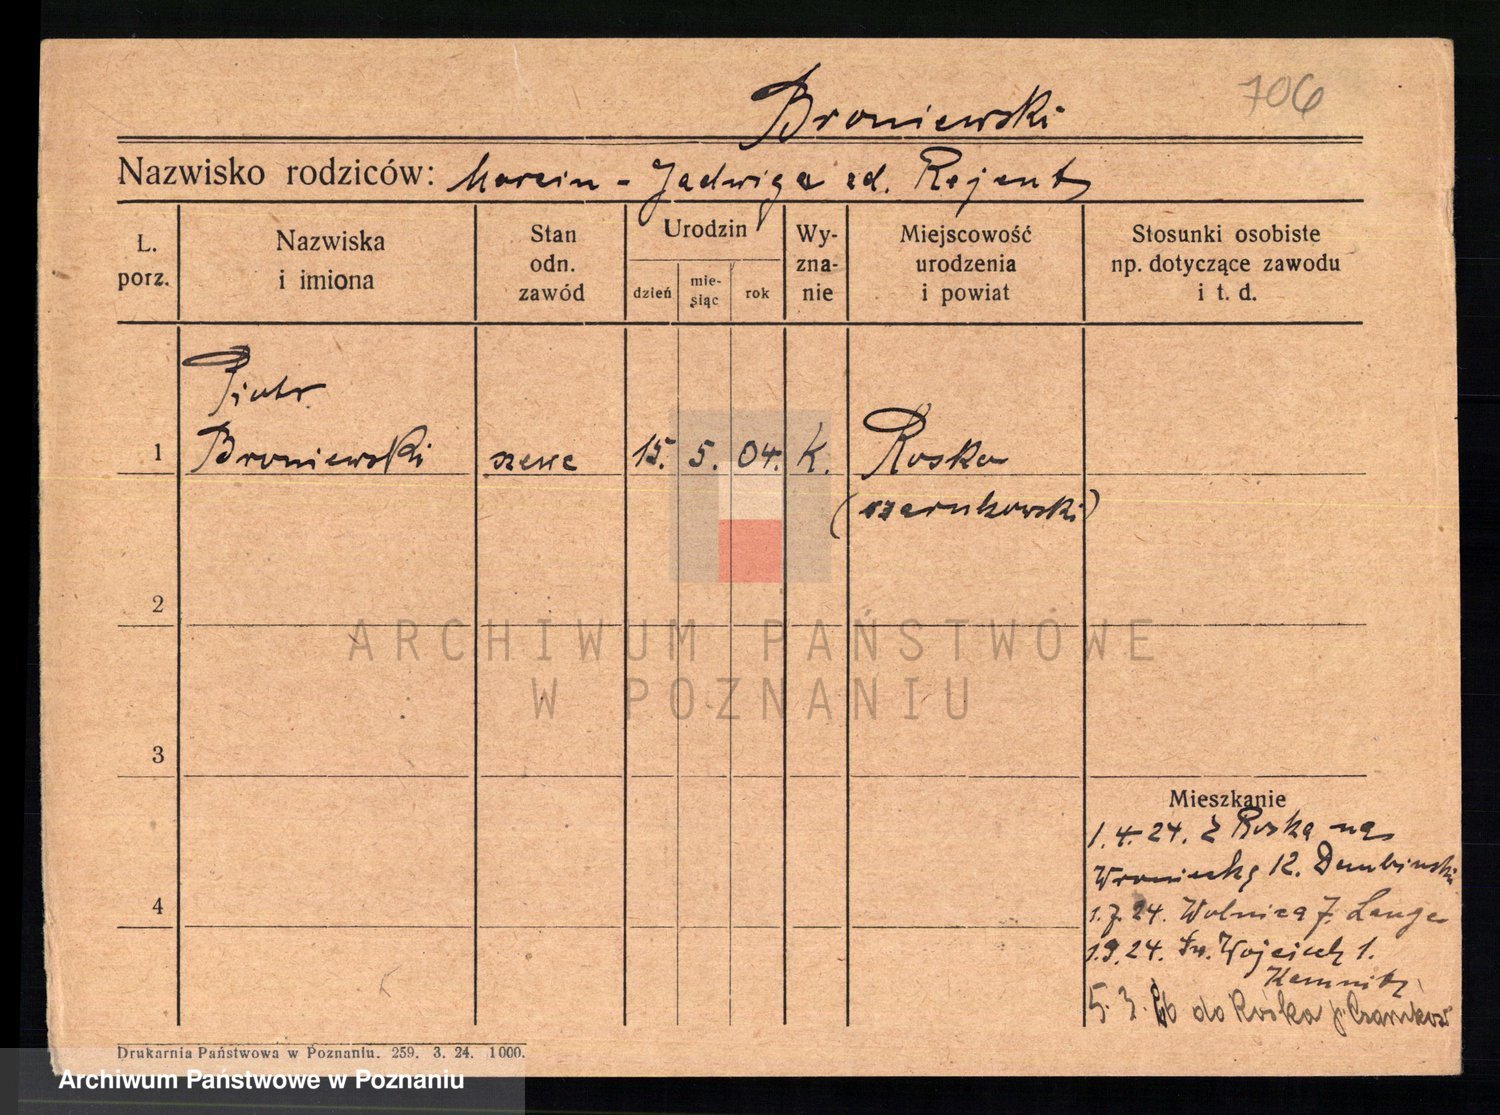 706
Broniewski
Nazwisko rodziców: Marcin - Jadwiga zd. Rejent
L. porz.
Nazwiska i imiona
Stan odn. zawód
Urodzin
dzień
mie-
siąc
rok
Wy-
zna-
nie
Miejscowość
urodzenia
i powiat
Stosunki osobiste
np. dotyczące zawodu
i t. d.
Piotr
1 Broniewski szewc 15. 5. 04. K. Rosko
(czarnkowski)
2
ARCHIWUM PAŃSTWOWE
W POZNANIU
3
Mieszkanie
1.4.24. Z Roska na
Wroniecką 12. Dembinski
4
1.7.24. Wolnica 7. Lange
1.9.24. Św. Wojciech 1.
Kemnitz
5.3. do Roska p. Czarnków
Drukarnia Państwowa w Poznaniu. 259. 3. 24. 1000.
Archiwum Państwowe w Poznaniu